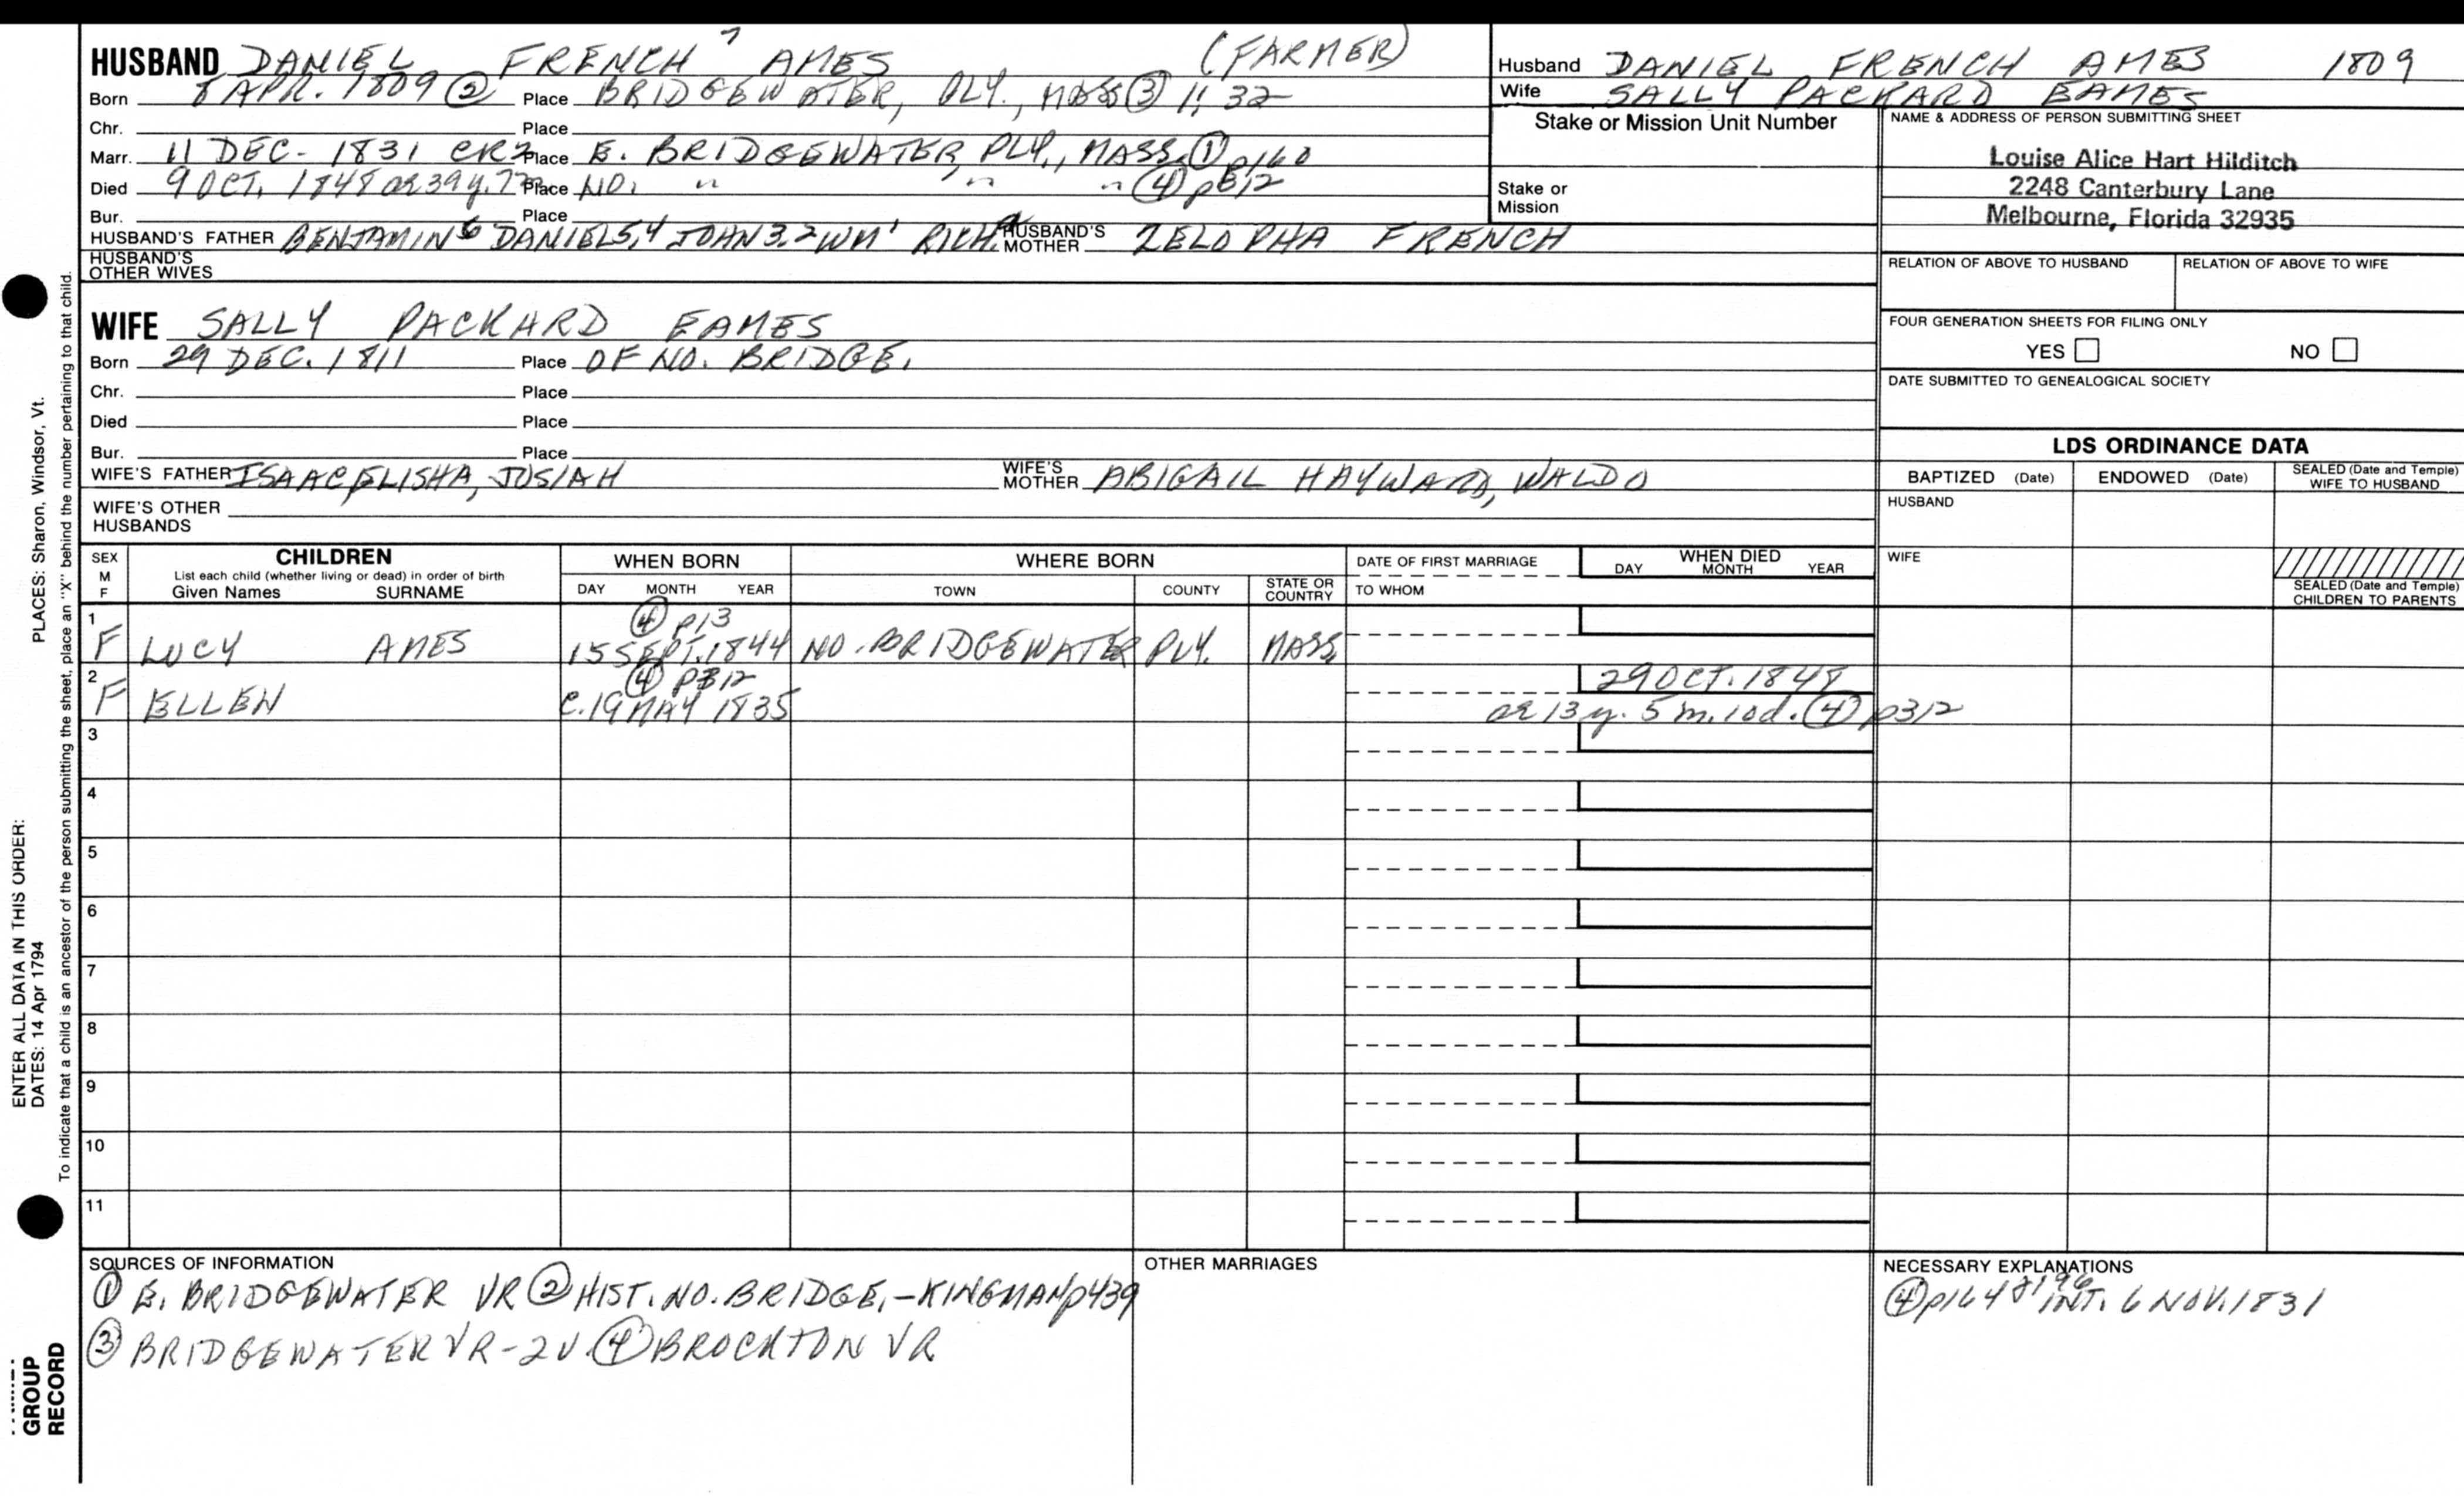 HUSBAND DANIEL FRENCH 7 AMES (FARMER)
Born 8 APR. 1809 ② Place BRIDGEWATER, PLY., MASS ③ 1:32
Chr. Place
Marr. 11 DEC. 1831 CR2 Place E. BRIDGEWATER, PLY., MASS. ① p160
Died 9 OCT. 1848 ae 39 y. 7 m Place NO. " " " ④ p312
Bur. Place
HUSBAND'S FATHER BENJAMIN 6 DANIEL 5,4 JOHN 3,2 WM 1 RICH. a HUSBAND'S MOTHER ZELOPHA FRENCH
HUSBAND'S OTHER WIVES
Husband DANIEL FRENCH AMES 1809
Wife SALLY PACKARD EAMES
Stake or Mission Unit Number
Stake or Mission
NAME & ADDRESS OF PERSON SUBMITTING SHEET
Louise Alice Hart Hilditch
2248 Canterbury Lane
Melbourne, Florida 32935
RELATION OF ABOVE TO HUSBAND RELATION OF ABOVE TO WIFE
FOUR GENERATION SHEETS FOR FILING ONLY
YES NO
DATE SUBMITTED TO GENEALOGICAL SOCIETY
WIFE SALLY PACKARD EAMES
Born 29 DEC. 1811 Place OF NO. BRIDGE.
Chr. Place
Died Place
Bur. Place
WIFE'S FATHER ISAAC ELISHA, JOSIAH WIFE'S MOTHER ABIGAIL HAYWARD, WALDO
WIFE'S OTHER HUSBANDS
LDS ORDINANCE DATA
BAPTIZED (Date) ENDOWED (Date) SEALED (Date and Temple) WIFE TO HUSBAND
HUSBAND
WIFE
SEALED (Date and Temple) CHILDREN TO PARENTS
SEX M F CHILDREN WHEN BORN WHERE BORN DATE OF FIRST MARRIAGE WHEN DIED
List each child (whether living or dead) in order of birth
Given Names SURNAME DAY MONTH YEAR TOWN COUNTY STATE OR COUNTRY TO WHOM DAY MONTH YEAR
1 ④ p13
F LUCY AMES 15 SEPT. 1844 NO. BRIDGEWATER PLY. MASS.
2 ④ p312 29 OCT. 1848
F ELLEN C. 19 MAY 1835 ae 13 y. 5 m. 10 d. ④ p312
3
4
5
6
7
8
9
10
11
SOURCES OF INFORMATION
① E. BRIDGEWATER VR ② HIST. NO. BRIDGE. - KINGMAN p439
③ BRIDGEWATER VR - 2 V ④ BROCKTON VR
OTHER MARRIAGES
NECESSARY EXPLANATIONS
④ p164 INT. 6 NOV. 1831
PLACES: Sharon, Windsor, Vt.
ENTER ALL DATA IN THIS ORDER:
DATES: 14 Apr 1794
To indicate that a child is an ancestor of the person submitting the sheet, place an "X" behind the number pertaining to that child.
GROUP
RECORD